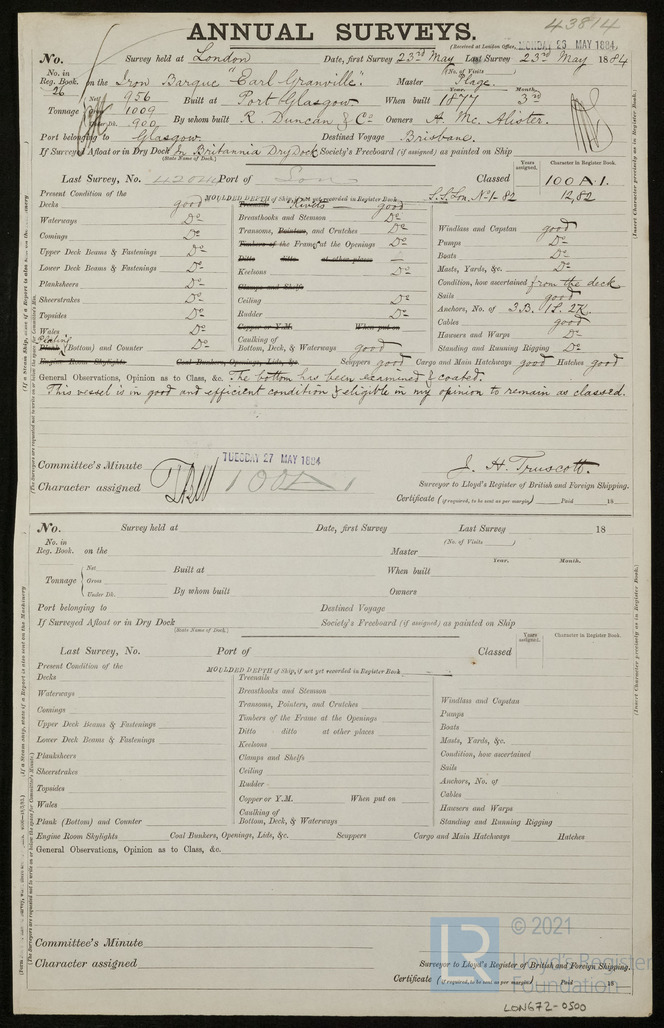 43814
ANNUAL SURVEYS.
(Received at London Office, MONDAY 23 MAY 1884,
No. Survey held at London Date, first Survey 23rd May Last Survey 23rd May 1884
(No. of Visits)
No. in Reg. Book. 26 on the Iron Barque "Earl Granville". Master
Year. Month.
Tonnage Net 956 Built at Port Glasgow When built 1877 3rd
1009
900 By whom built R. Duncan & Co Owners A. Mc. Alister.
Port belonging to Glasgow Destined Voyage Brisbane.
If Surveyed Afloat or in Dry Dock In Britannia Dry Dock Society's Freeboard (if assigned) as painted on Ship
(State Name of Dock.)
Years assigned. Character in Register Book.
Last Survey, No. Port of Lon Classed 100A1.
Present Condition of the MOULDED DEPTH of Ship, if not yet recorded in Register Book S.S. Lon. No 1- 82 12,82
Decks good Treenails Rivets good
Waterways Do Breasthooks and Stemson Do
Comings Do Transoms, Pointers, and Crutches Do Windlass and Capstan good
Upper Deck Beams & Fastenings Do Timbers of the Frame at the Openings Do Pumps Do
Ditto ditto at other places Boats Do
Lower Deck Beams & Fastenings Do Keelsons Do Masts, Yards, &c. Do
Planksheers Do Clamps and Shelfs Condition, how ascertained from the deck
Sheerstrakes Do Ceiling Do Sails good
Topsides Do Rudder Do Anchors, No. of 3B. 1S. 2K.
Wales Do Copper or Y.M. When put on Cables good
Plating Caulking of Hawsers and Warps Do
Plank (Bottom) and Counter Do Bottom, Deck, & Waterways good Standing and Running Rigging Do
Engine Room Skylights Coal Bunkers, Openings, Lids, &c. Scuppers good Cargo and Main Hatchways good Hatches good
General Observations, Opinion as to Class, &c. The bottom has been examined & coated.
This vessel is in good and efficient condition & eligible in my opinion to remain as classed.
Committee's Minute TUESDAY 27 MAY 1884 J. H. Truscott.
Character assigned 100A1 Surveyor to Lloyd's Register of British and Foreign Shipping.
Certificate (if required, to be sent as per margin) Paid 18
No. Survey held at Date, first Survey Last Survey 18
(No. of Visits)
No. in Reg. Book. on the Master
Year. Month.
Tonnage Net Built at When built
Gross
Under Dk. By whom built Owners
Port belonging to Destined Voyage
If Surveyed Afloat or in Dry Dock Society's Freeboard (if assigned) as painted on Ship
(State Name of Dock.)
Years assigned. Character in Register Book.
Last Survey, No. Port of Classed
Present Condition of the MOULDED DEPTH of Ship, if not yet recorded in Register Book
Decks Treenails
Waterways Breasthooks and Stemson
Comings Transoms, Pointers, and Crutches Windlass and Capstan
Upper Deck Beams & Fastenings Timbers of the Frame at the Openings Pumps
Ditto ditto at other places Boats
Lower Deck Beams & Fastenings Keelsons Masts, Yards, &c.
Planksheers Clamps and Shelfs Condition, how ascertained
Sheerstrakes Ceiling Sails
Topsides Rudder Anchors, No. of
Wales Copper or Y.M. When put on Cables
Caulking of Hawsers and Warps
Plank (Bottom) and Counter Bottom, Deck, & Waterways Standing and Running Rigging
Engine Room Skylights Coal Bunkers, Openings, Lids, &c. Scuppers Cargo and Main Hatchways Hatches
General Observations, Opinion as to Class, &c.
Committee's Minute
Character assigned Surveyor to Lloyd's Register of British and Foreign Shipping.
Certificate (if required, to be sent as per margin) Paid 18
© 2021
LR Lloyd's Register
Foundation
LON672-0500
(Insert Character precisely as in Register Book.)
(Insert Character precisely as in Register Book.)